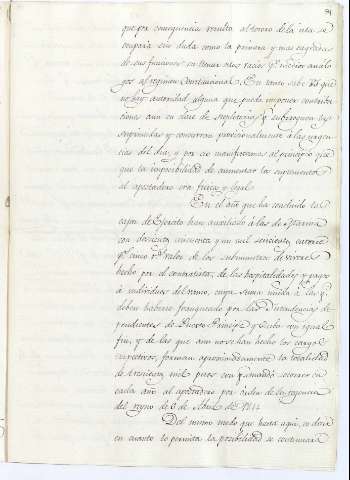 que por consequencia resulto al tesoro de la isla se
ocuparia sin duda como la primera y mas
de sus funciones en llenar otros vacios pr. medios analo
gos al regimen Constitucional. En tanto sabe VS que
no hay autoridad alguna que pueda imponer contribu
ciones aun en clase de suplentorias y subroguen las
suprimidas y concurran provisionalmente a las urgen
cias del dia, y por eso manifestamos al principio que
que la imposibilidad de aumentar los suplementos
al apostadero era fisica y legal.
En el año que ha concluido las
cajas de Exercito han auxiliado á las de Marina
con doscientos cincuenta y un mil seiscientos catorce
ps. cinco rs. valor de los subministros de viveres
hecho por el contratista, de las hospitalidades y pagos
á individuos del ramo, cuya suma unida á las q.
deben haberse franqueado por las Intendencias de
pendientes de Puerto Principe y Cuba con igual
fin, y de las que aun no se han hecho los cargos
respectivos, forman aproximadamente la totalidad
de trescientos mil pesos con q. se mandó socorrer en
cada año al apostadero por orden de la regencia
del reyno de 6 de Abril de 1811
Del mismo modo que hasta aqui, es decir
en cuanto lo permita la posibilidad se continuará